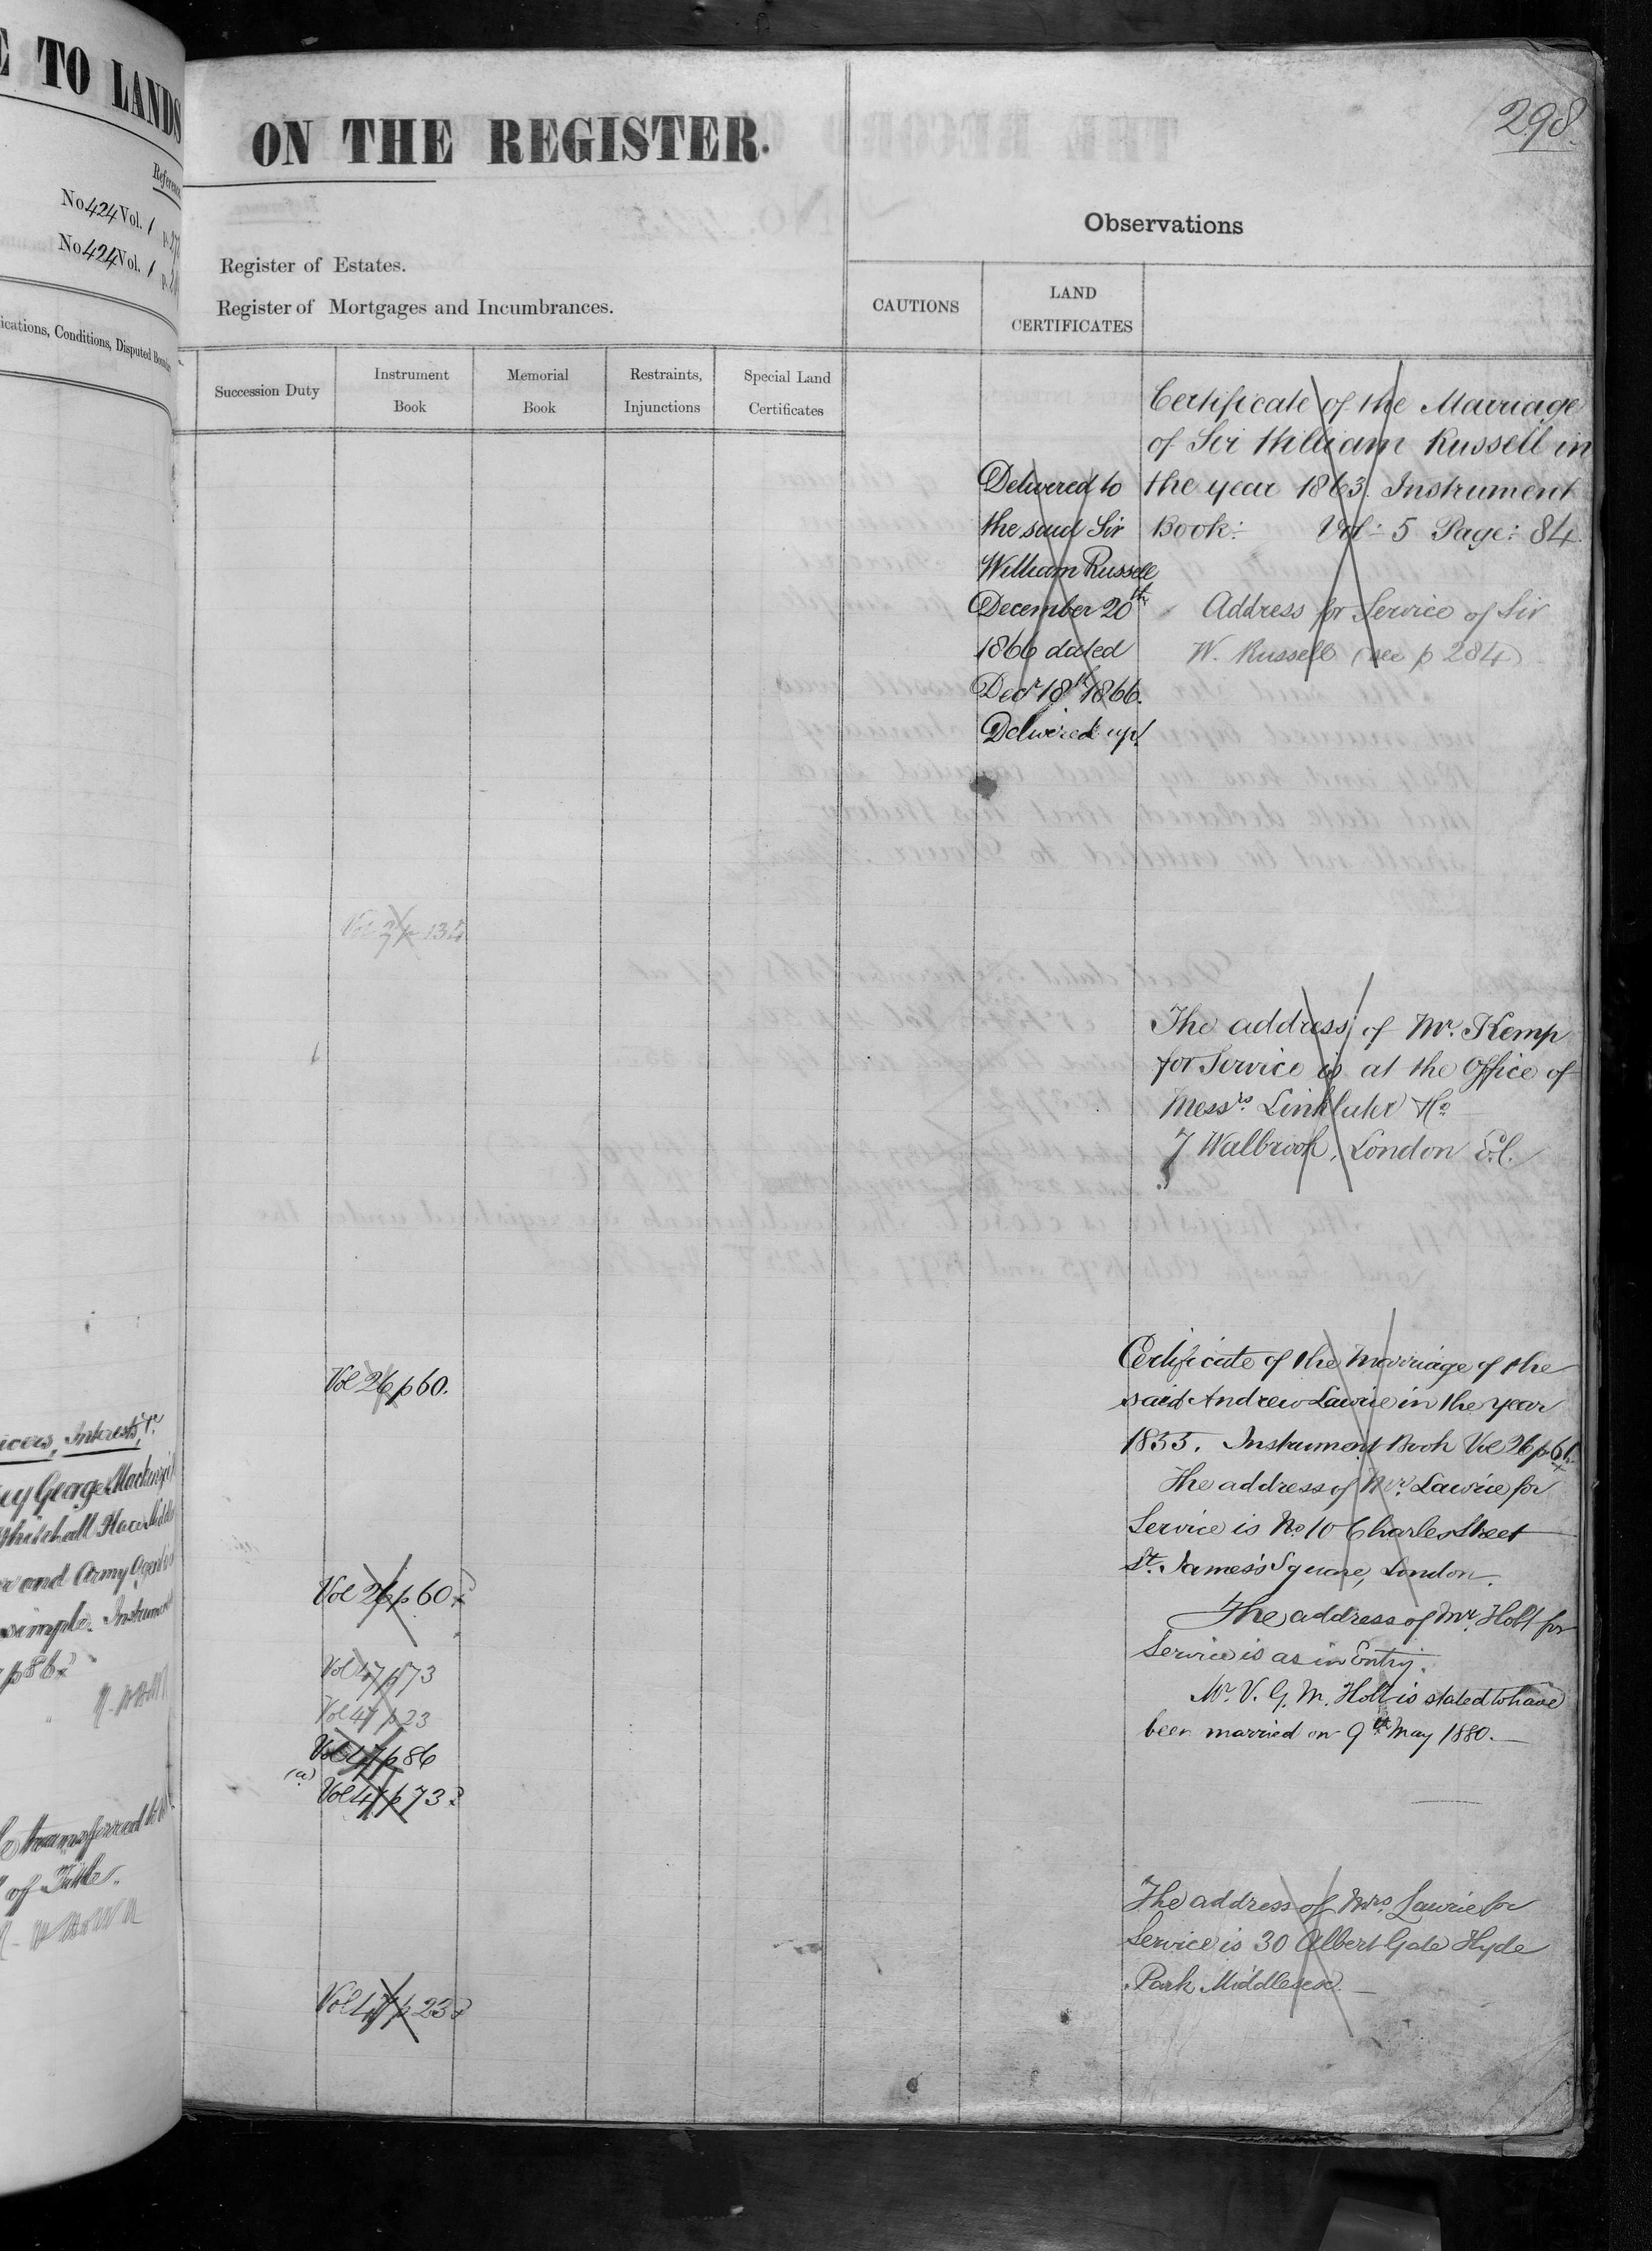 TO LANDS
Reference
No 424 Vol. 1
No 424 Vol. 1
Conditions, Disputed
Interests,
George
and Army
simple.
p 86
transferred
of Title.
298.
ON THE REGISTER.
Register of Estates.
Register of Mortgages and Incumbrances.
Succession Duty
Instrument
Book
Memorial
Book
Restraints,
Injunctions
Special Land
Certificates
Vol 26 p 60.
Vol 26 p 60
Vol 47 p 73
Vol 47 p 23
Vol 47 p 86
(a)
Vol 47 p 73
Vol 47 p 23
Observations
CAUTIONS
LAND
CERTIFICATES
Delivered to
the said Sir
William Russell
December 20th
1866 dated
Decr 18th 1866.
Delivered up.
Certificate of the Marriage
of Sir William Russell in
the year 1863. Instrument
Book: Vol: 5 Page: 84.
Address for Service of Sir
W. Russell (see p 284)
The address of Mr. Kemp
for Service is at the Office of
Messrs. Linklater & Co
7 Walbrook, London E.C.
Certificate of the Marriage of the
said Andrew Lawrie in the year
1855. Instrument Book Vol 26 p 61.
The address of Mr. Lawrie for
Service is No 10 Charles Street
St. James's Square, London.
The address of Mr. Holt for
Service is as in Entry.
Mr. V. G. M. Holt is stated to have
been married on 9th May 1880.
The address of Mrs. Lawrie for
Service is 30 Albert Gate Hyde
Park Middlesex.